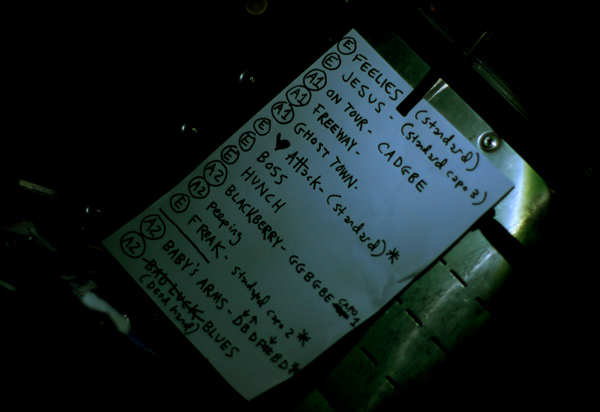 E FEELIES (standard)
E JESUS - (standard capo 3)
A1 ON TOUR - CADGBE
A1 FREEWAY -
A1 GHOST TOWN -
E ♥ Attack - (standard)*
E BOSS
E HUNCH
A2 BLACKBERRY - GGBGBE capo 1
A2 Peeping
E FREAK - standard capo 2 *
A2 BABY'S ARMS -
A2 BAD LUCK BLUES